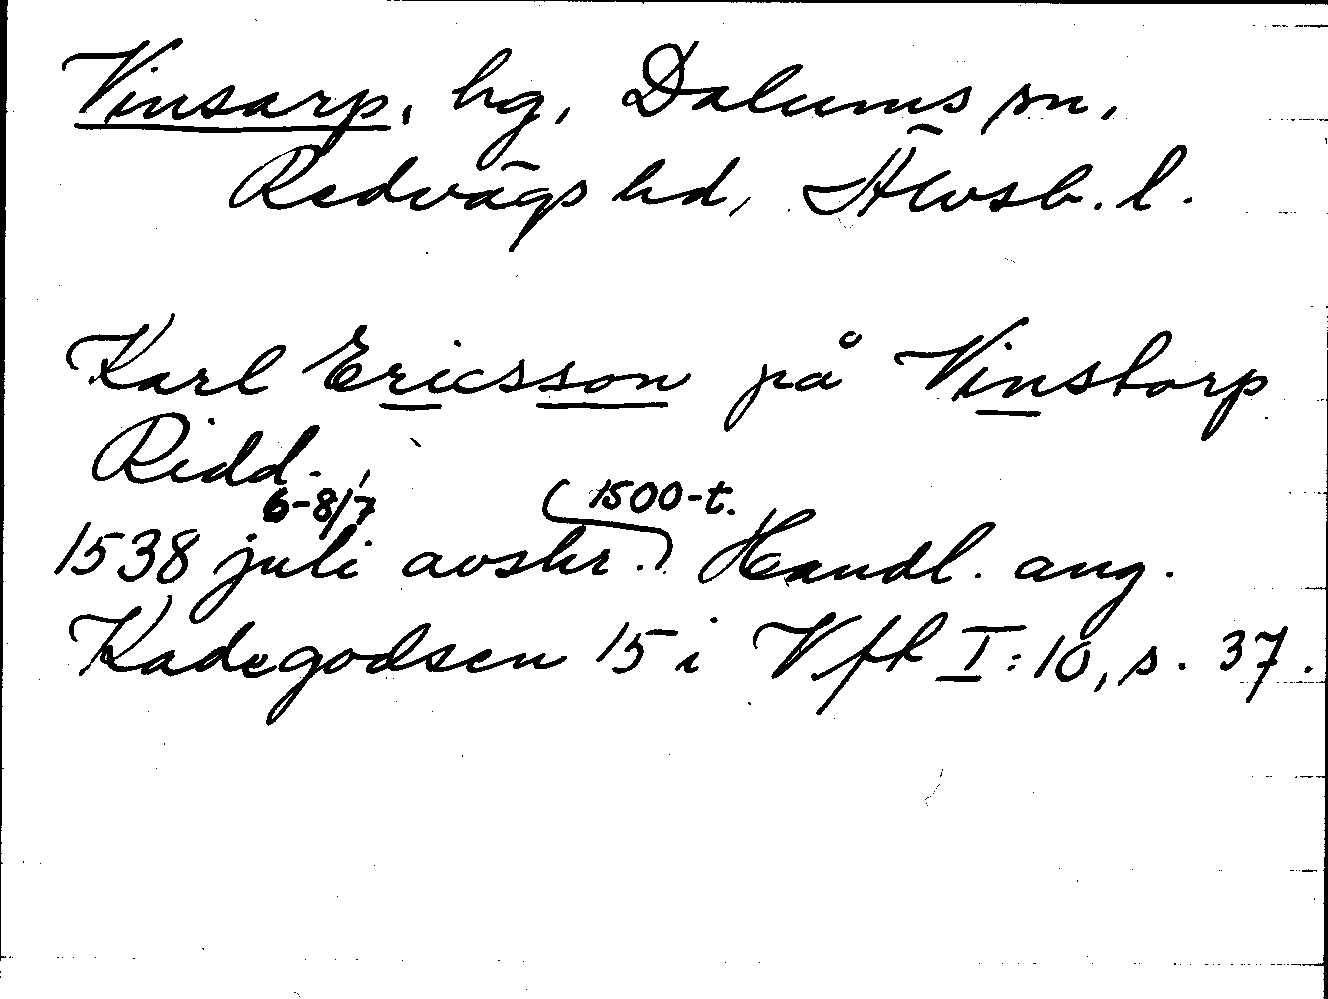 Vinsarp, hg, Dalums sn,
Redvägs hd, Älvsb. l.
Karl Ericsson på Vinstorp
Ridd.
6-8/7 (1500-t.)
1538 juli avskr. Handl. ang.
Kadegodsen 15 i Vfk I:10, s. 37.